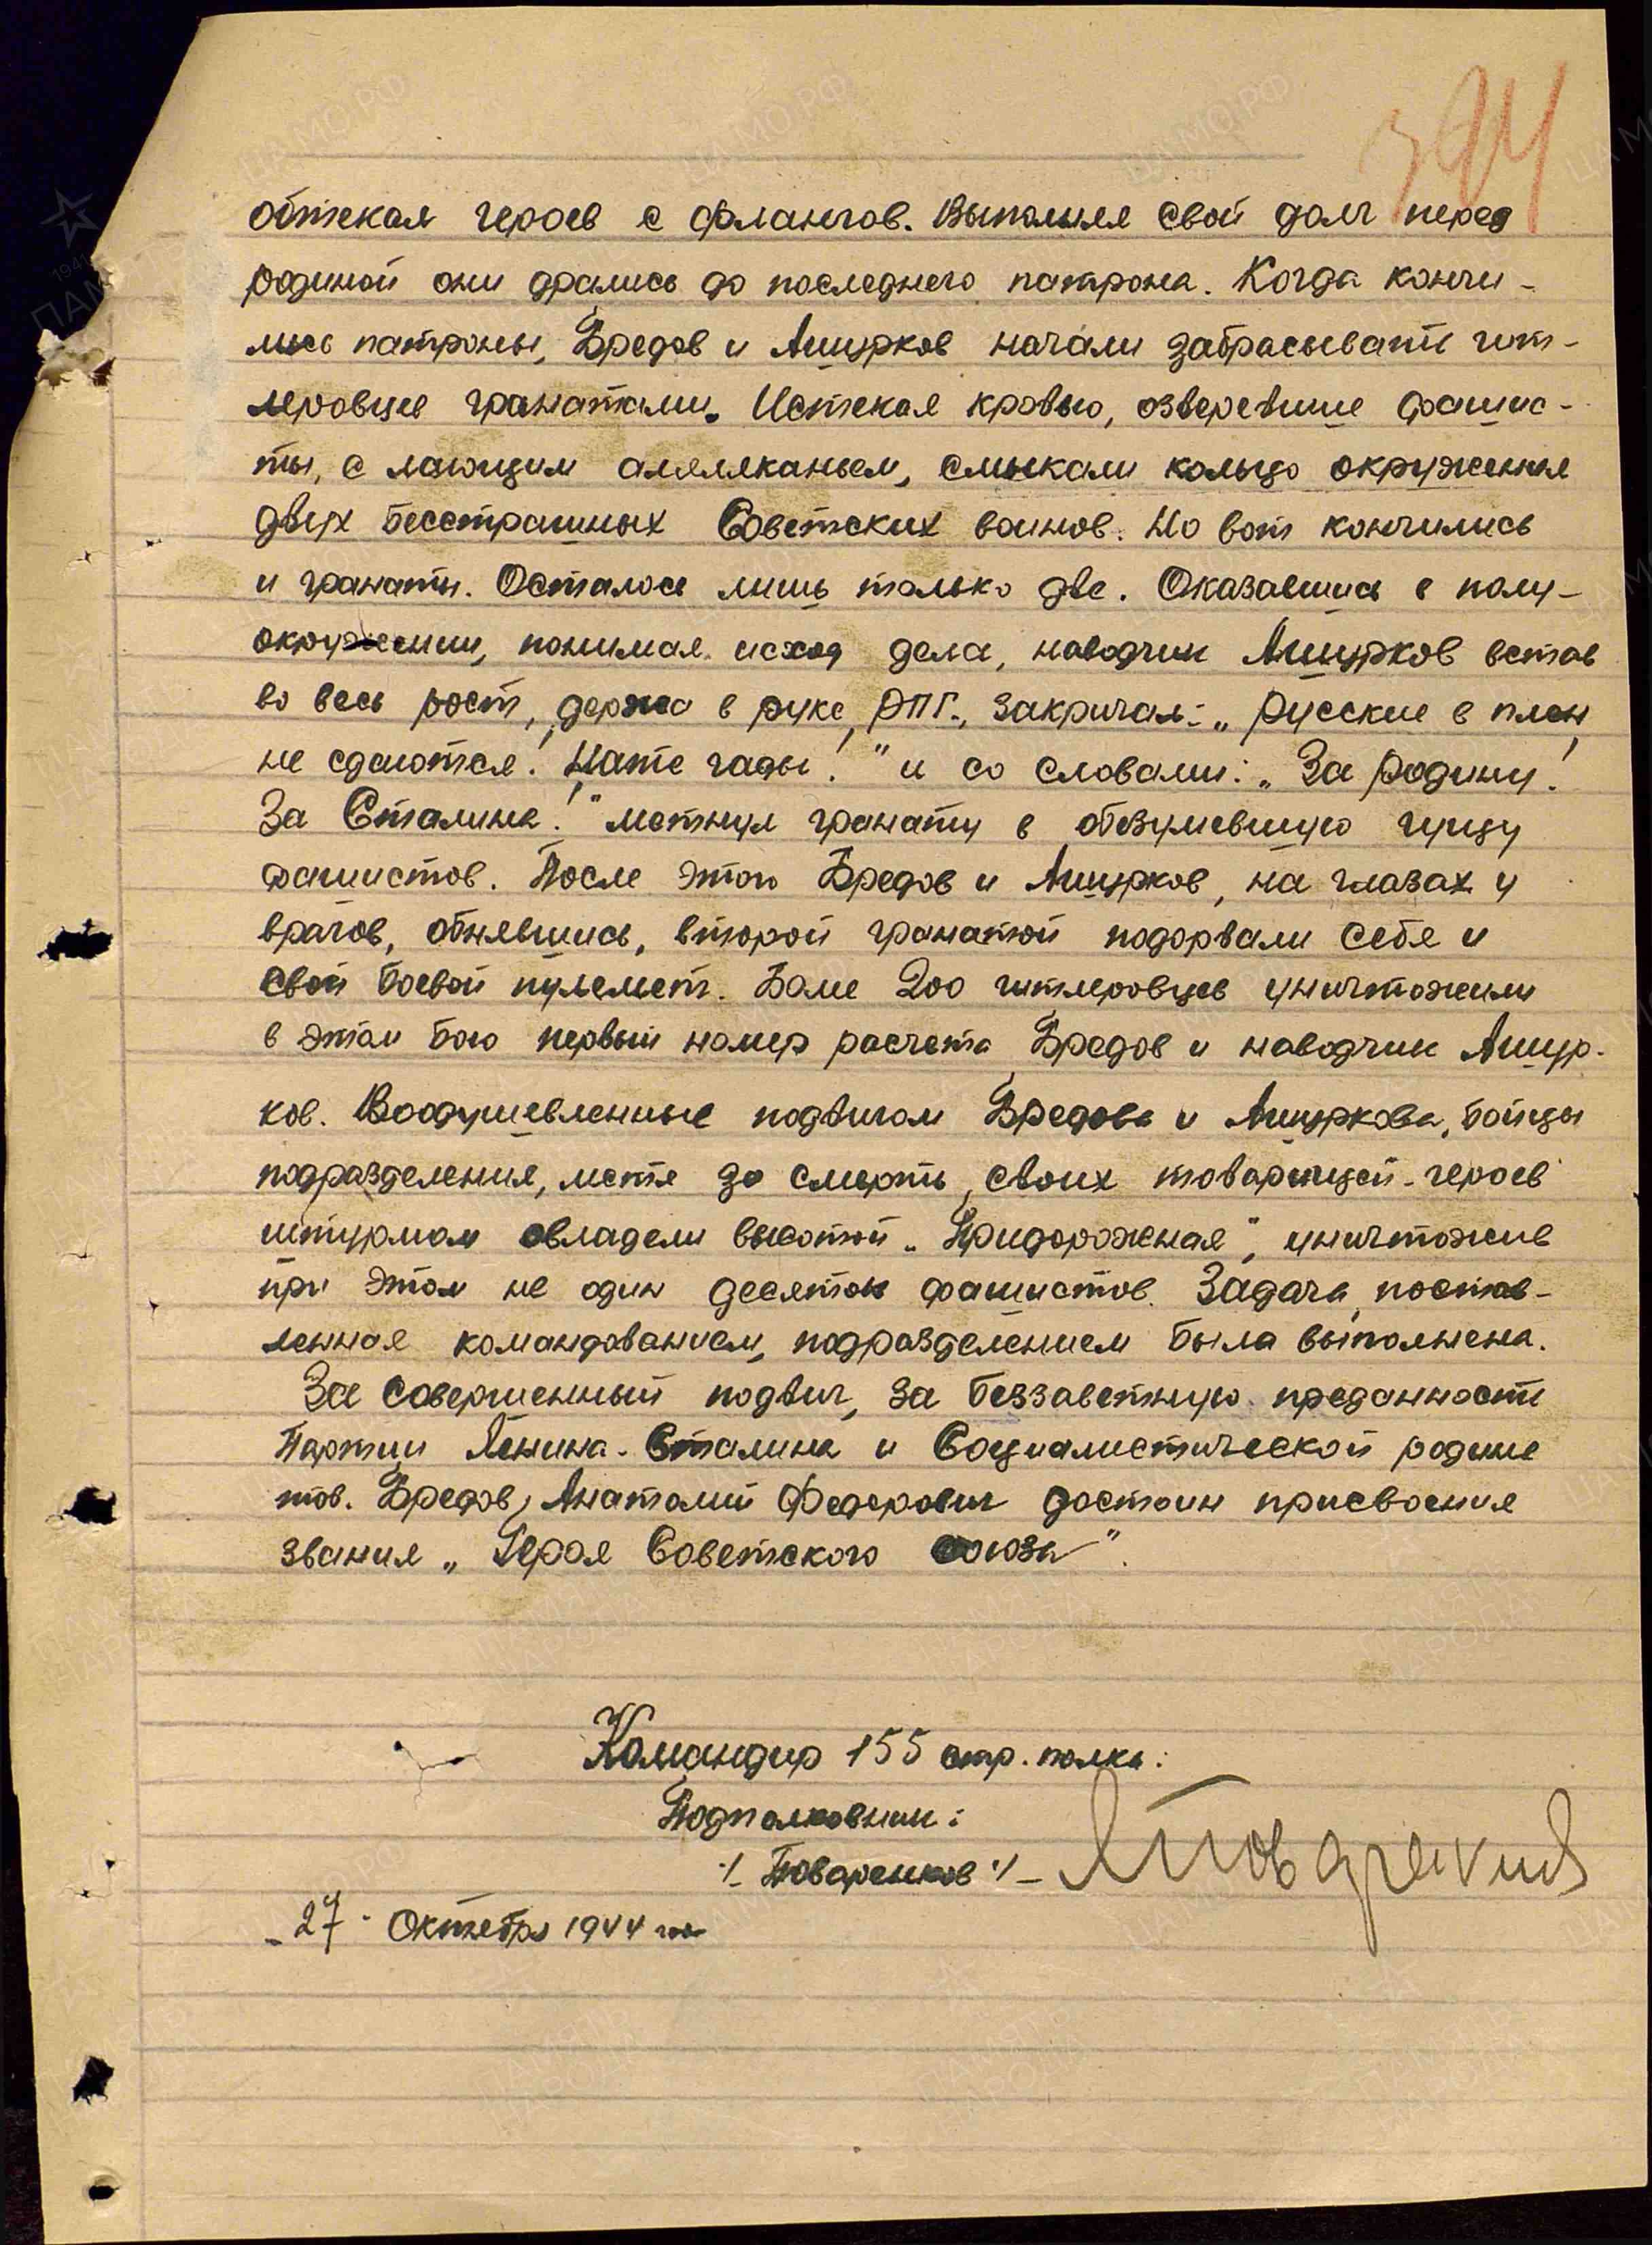 394
обтекая героев с флангов. Выполняя свой долг перед
родиной они дрались до последнего патрона. Когда кончи-
лись патроны, Бредов и Ашурков начали забрасывать гит-
леровцев гранатами. Истекая кровью, озверевшие фашис-
ты, с лающим аляляканьем, смыкали кольцо окружения
двух бесстрашных Советских воинов. Но вот кончились
и гранаты. Осталось лишь только две. Оказавшись в полу-
окружении, понимая исход дела, наводчик Ашурков встав
во весь рост, держа в руке РПГ., закричал: „Русские в плен
не сдаются! Нате гады!" и со словами: „За родину!
За Сталина!" метнул гранату в обезумевшую гущу
фашистов. После этого Бредов и Ашурков, на глазах у
врагов, обнявшись, второй гранатой подорвали себя и
свой боевой пулемет. Боле 200 гитлеровцев уничтожили
в этом бою первый номер расчета Бредов и наводчик Ашур-
ков. Воодушевленные подвигом Бредова и Ашуркова, бойцы
подразделения, мстя за смерть своих товарищей-героев
штурмом овладели высотой „Придорожная", уничтожив
при этом не один десяток фашистов. Задача, постав-
ленная командованием, подразделением была выполнена.
За совершенный подвиг, за беззаветную преданность
Партии Ленина-Сталина и Социалистической родине
тов. Бредов, Анатолий Федорович достоин присвоения
звания „Героя Советского союза".
Командир 155 стр. полка:
Подполковник:
/ Поваренков /
27 Октября 1944 год
ЦАМО.РФ
ПАМЯТЬ НАРОДА